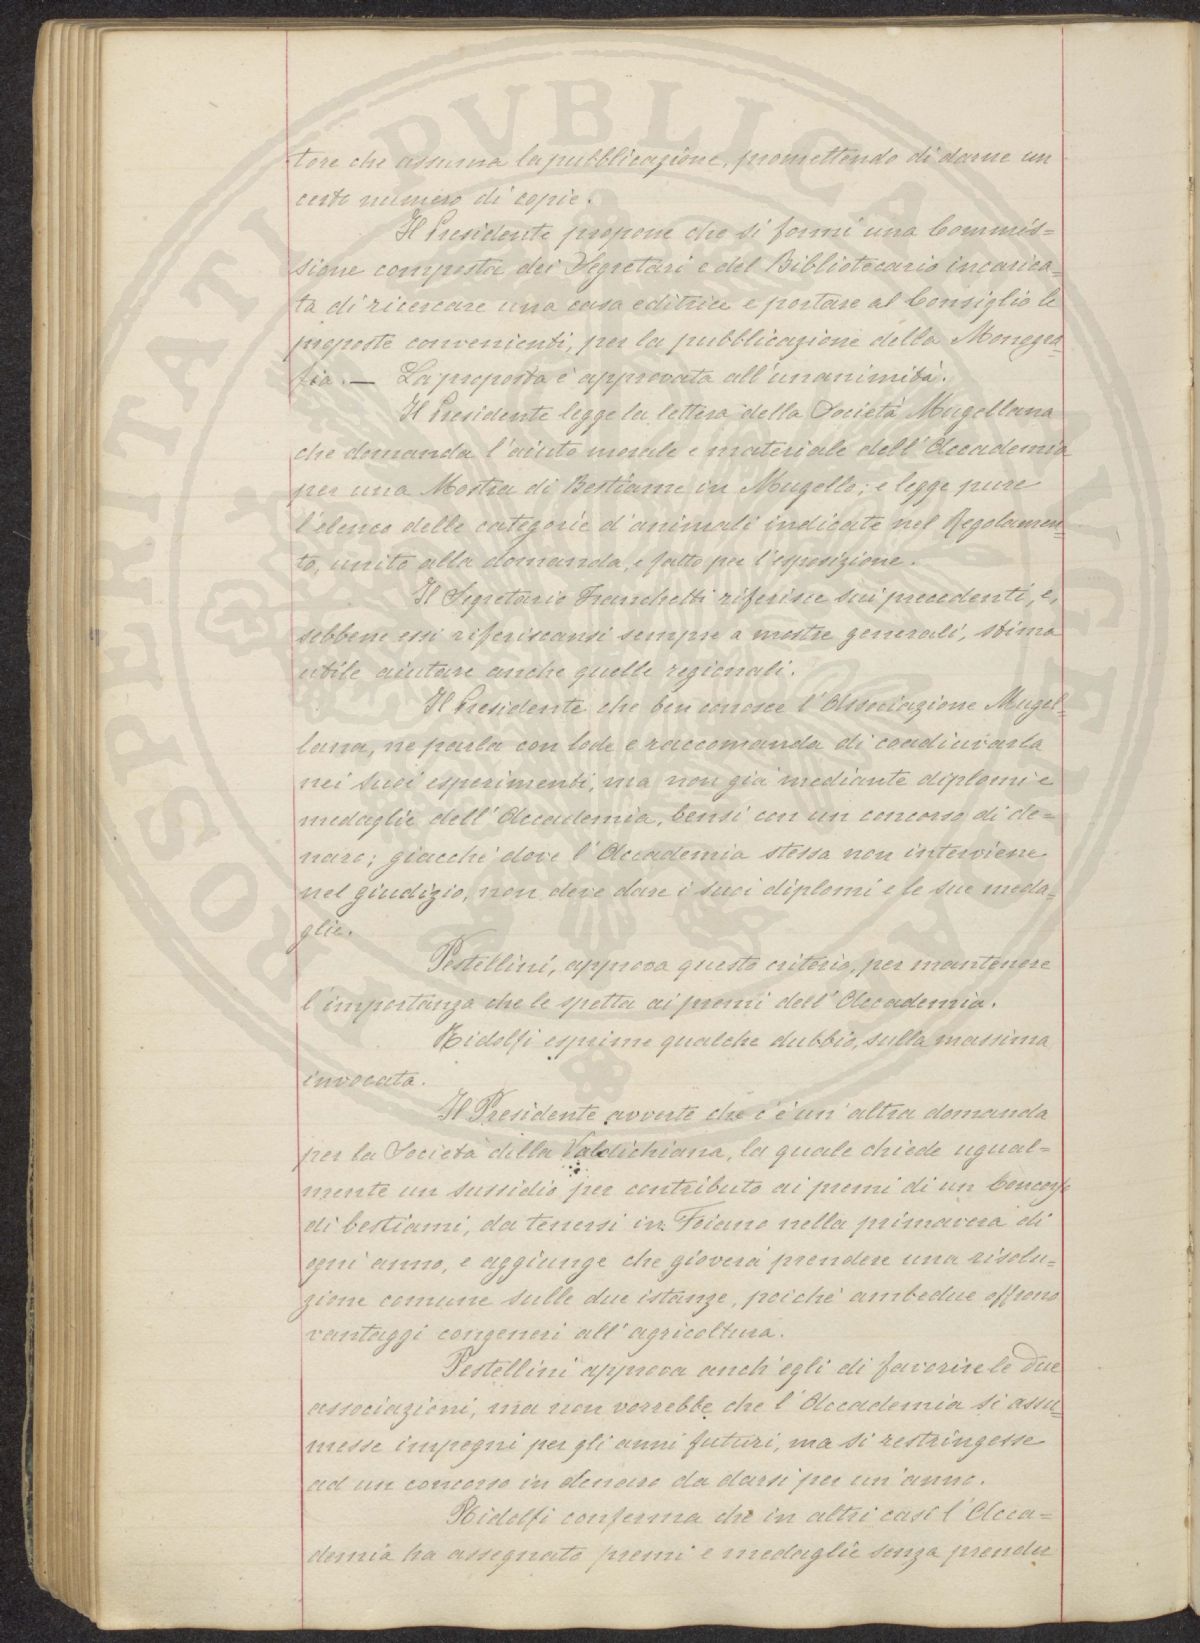 tore che assuma la pubblicazione, promettendo di darne un
certo numero di copie.
Il Presidente propone che si formi una Commis=
sione composta dei Segretari e del Bibliotecario incarica=
ta di ricercare una casa editrice e portare al Consiglio le
proposte convenienti, per la pubblicazione della Monogra=
fia. — La proposta è approvata all'unanimità.
Il Presidente legge la lettera della Società Mugellana
che domanda l'aiuto morale e materiale dell'Accademia
per una Mostra di Bestiame in Mugello; e legge pure
l'elenco delle categorie d'animali indicate nel Regolamen=
to, unito alla domanda, e fatto per l'esposizione.
Il Segretario Franchetti riferisce sui precedenti, e,
sebbene essi riferiscansi sempre a mostre generali, stima
utile aiutare anche quelle regionali.
Il Presidente che ben conosce l'Associazione Mugel=
lana, ne parla con lode e raccomanda di coadiuvarla
nei suoi esperimenti, ma non già mediante diplomi e
medaglie dell'Accademia, bensì con un concorso di de=
naro; giacchè dove l'Accademia stessa non interviene
nel giudizio, non deve dare i suoi diplomi e le sue meda=
glie.
Pestellini, approva questo criterio, per mantenere
l'importanza che le spetta ai premi dell'Accademia.
Ridolfi esprime qualche dubbio, sulla massima
invocata.
Il Presidente avverte che c'è un'altra domanda
per la Società della Valdichiana, la quale chiede ugual=
mente un sussidio per contributo ai premi di un Concorso
di bestiami, da tenersi in Foiano nella primavera di
ogni anno, e aggiunge che gioverà prendere una risolu=
zione comune sulle due istanze, poichè ambedue offrono
vantaggi congeneri all'agricoltura.
Pestellini approva anch'egli di favorire le due
associazioni, ma non vorrebbe che l'Accademia si assu=
messe impegni per gli anni futuri, ma si restringesse
ad un concorso in denaro da darsi per un'anno.
Ridolfi conferma che in altri casi l'Acca=
demia ha assegnato premi e medaglie senza prender
PROSPERITATI PVBLICAE AVGENDAE